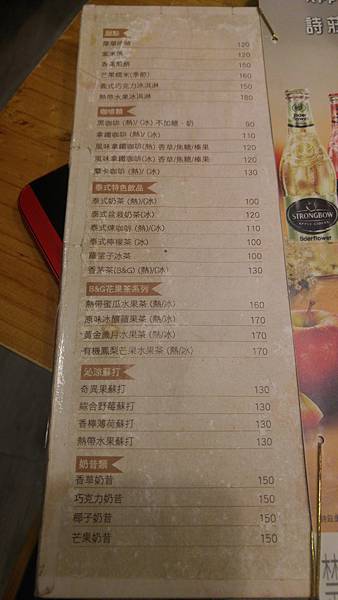 甜點
摩摩喳喳 120
120
香蕉煎餅 150
芒果糯米(季節) 160
義式巧克力冰淇淋 150
熱帶水果冰淇淋 180
咖啡類
黑咖啡 (熱)/(冰) 不加糖、奶 90
拿鐵咖啡 (熱)/(冰) 110
風味拿鐵咖啡(熱) 香草/焦糖/榛果 120
風味拿鐵咖啡(冰) 香草/焦糖/榛果 120
摩卡咖啡 (熱)/(冰) 130
泰式特色飲品
泰式奶茶 (熱)/(冰) 100
泰式盆栽奶茶(冰) 120
泰式煉咖啡 (熱)/(冰) 110
泰式檸檬茶 (冰) 100
羅望子冰茶 100
香茅茶(B&G) (熱)/(冰) 130
B&G花果茶系列
熱帶蜜瓜水果茶 (熱/冰) 160
原味冰釀蘋果茶 (熱/冰) 170
黃金歲月水果茶 (熱/冰) 170
有機鳳梨芒果水果茶 (熱/冰) 170
沁涼蘇打
奇異果蘇打 130
綜合野莓蘇打 130
香檸薄荷蘇打 130
熱帶水果蘇打 130
奶昔類
香草奶昔 150
巧克力奶昔 150
椰子奶昔 150
芒果奶昔 150
詩莊
STRONGBOW
APPLE CIDERS
Elderflower